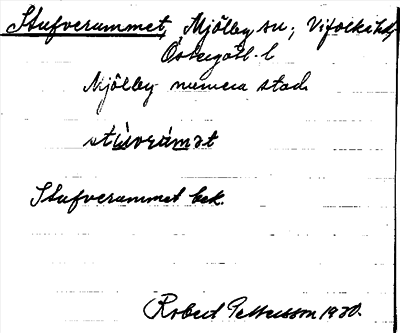 Stufverummet, Mjölby sn; Vifolka hd,
Östergötl. l
Mjölby numera stad.
stùvərúmət
Stufverummet bek.
Robert Pettersson 1930.